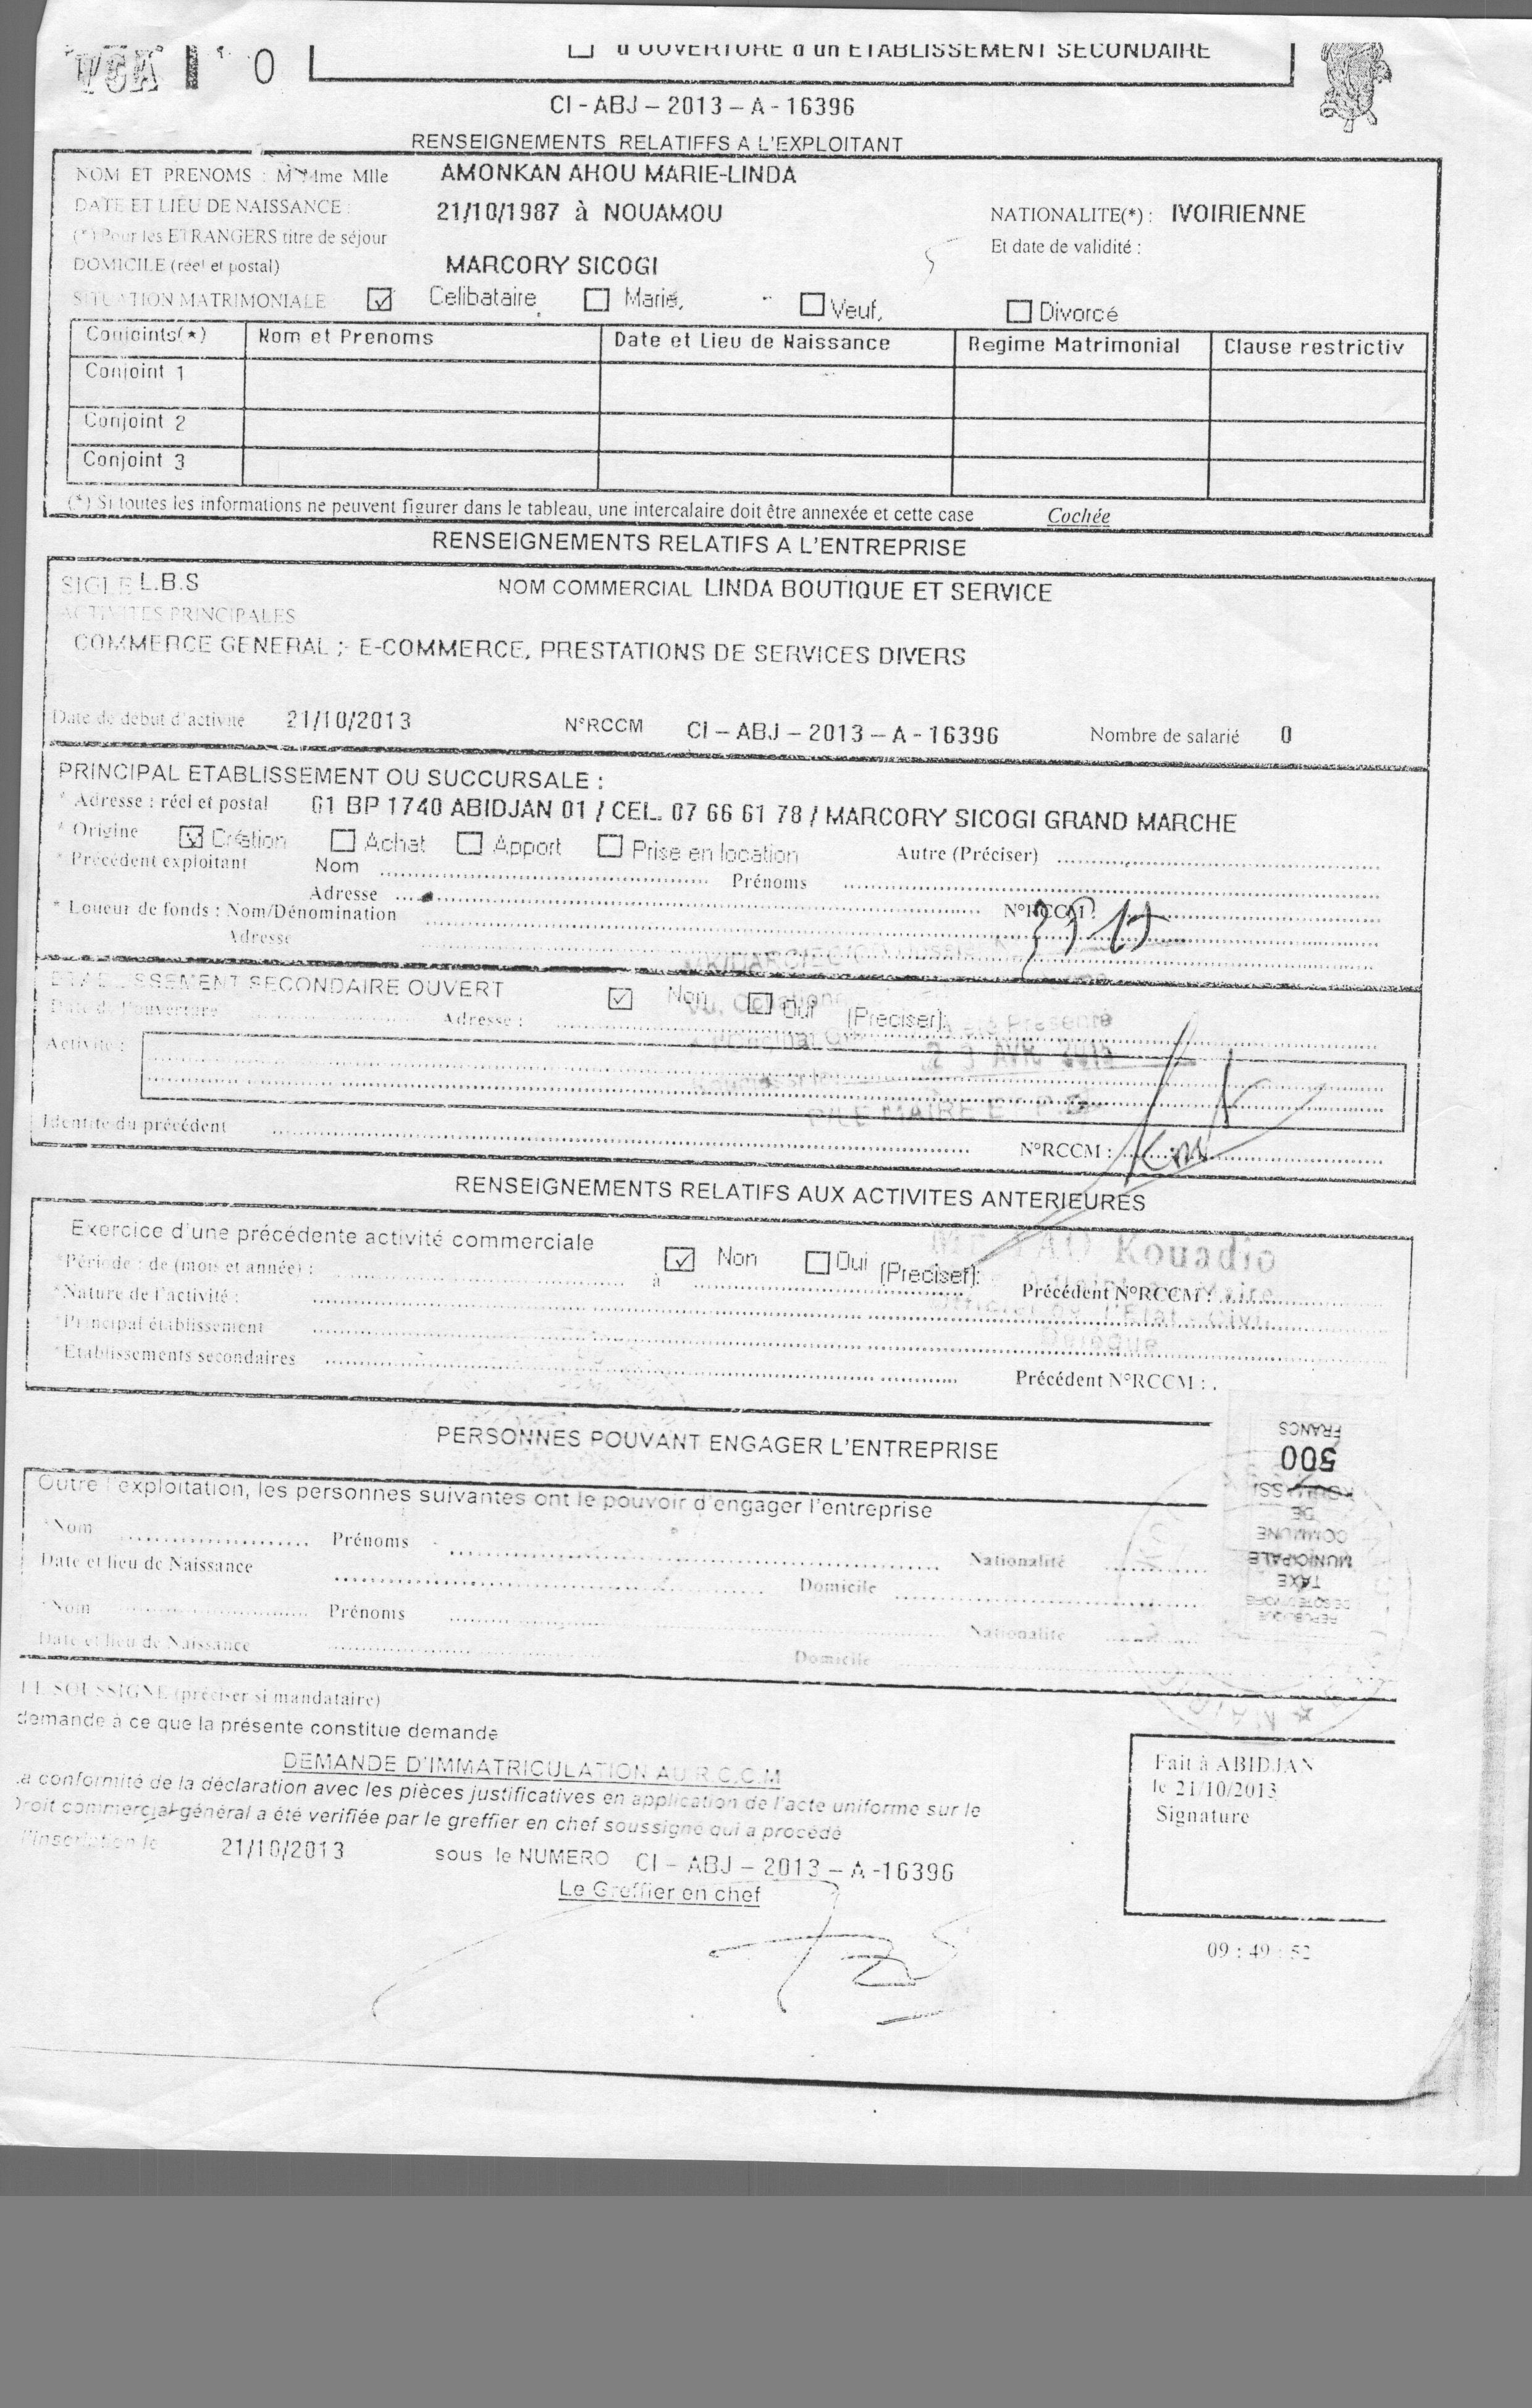 0
d'OUVERTURE d'un ETABLISSEMENT SECONDAIRE
CI - ABJ – 2013 – A - 16396
RENSEIGNEMENTS RELATIFFS A L'EXPLOITANT
NOM ET PRENOMS : M Mme Mlle AMONKAN AHOU MARIE-LINDA
DATE ET LIEU DE NAISSANCE : 21/10/1987 à NOUAMOU NATIONALITE(*) : IVOIRIENNE
(*) Pour les ETRANGERS titre de séjour Et date de validité :
DOMICILE (réel et postal) MARCORY SICOGI
SITUATION MATRIMONIALE Celibataire, Marié, Veuf, Divorcé
Conjoints(*) Nom et Prenoms Date et Lieu de Naissance Regime Matrimonial Clause restrictiv
Conjoint 1
Conjoint 2
Conjoint 3
(*) Si toutes les informations ne peuvent figurer dans le tableau, une intercalaire doit être annexée et cette case Cochée
RENSEIGNEMENTS RELATIFS A L'ENTREPRISE
SIGLE L.B.S NOM COMMERCIAL LINDA BOUTIQUE ET SERVICE
ACTIVITES PRINCIPALES
COMMERCE GENERAL ;- E-COMMERCE, PRESTATIONS DE SERVICES DIVERS
Date de début d'activité 21/10/2013 N°RCCM CI – ABJ – 2013 – A - 16396 Nombre de salarié 0
PRINCIPAL ETABLISSEMENT OU SUCCURSALE :
* Adresse : réel et postal 01 BP 1740 ABIDJAN 01 / CEL. 07 66 61 78 / MARCORY SICOGI GRAND MARCHE
* Origine Création Achat Apport Prise en location Autre (Préciser)
* Précédent exploitant Nom Prénoms
Adresse N°RCCM :
* Loueur de fonds : Nom/Dénomination
Adresse
ETABLISSEMENT SECONDAIRE OUVERT Non Oui (Preciser):
Date de l'ouverture Adresse :
Activité :
23 AVR 2015
P/LE MAIRE ET P.D
Identité du précédent N°RCCM :
RENSEIGNEMENTS RELATIFS AUX ACTIVITES ANTERIEURES
Exercice d'une précédente activité commerciale Non Oui (Preciser):
Kouadio
*Période : de (mois et année) : à Précédent N°RCCM :
*Nature de l'activité :
Officier de l'Etat-Civil
*Principal établissement
Délégué
*Etablissements secondaires Précédent N°RCCM :
PERSONNES POUVANT ENGAGER L'ENTREPRISE
Outre l'exploitation, les personnes suivantes ont le pouvoir d'engager l'entreprise
*Nom Prénoms Nationalité
Date et lieu de Naissance Domicile
*Nom Prénoms Nationalité
Date et lieu de Naissance Domicile
REPUBLIQUE
DE COTE D'IVOIRE
TAXE
MUNICIPALE
COMMUNE
DE
KOUMASSI
500
FRANCS
MAIRIE
LE SOUSSIGNE (préciser si mandataire)
demande à ce que la présente constitue demande
DEMANDE D'IMMATRICULATION AU R.C.C.M
La conformité de la déclaration avec les pièces justificatives en application de l'acte uniforme sur le
Droit commercial général a été verifiée par le greffier en chef soussigné qui a procédé
l'inscription le 21/10/2013 sous le NUMERO CI – ABJ – 2013 – A -16396
Le Greffier en chef
Fait à ABIDJAN
le 21/10/2013
Signature
09 : 49 : 52